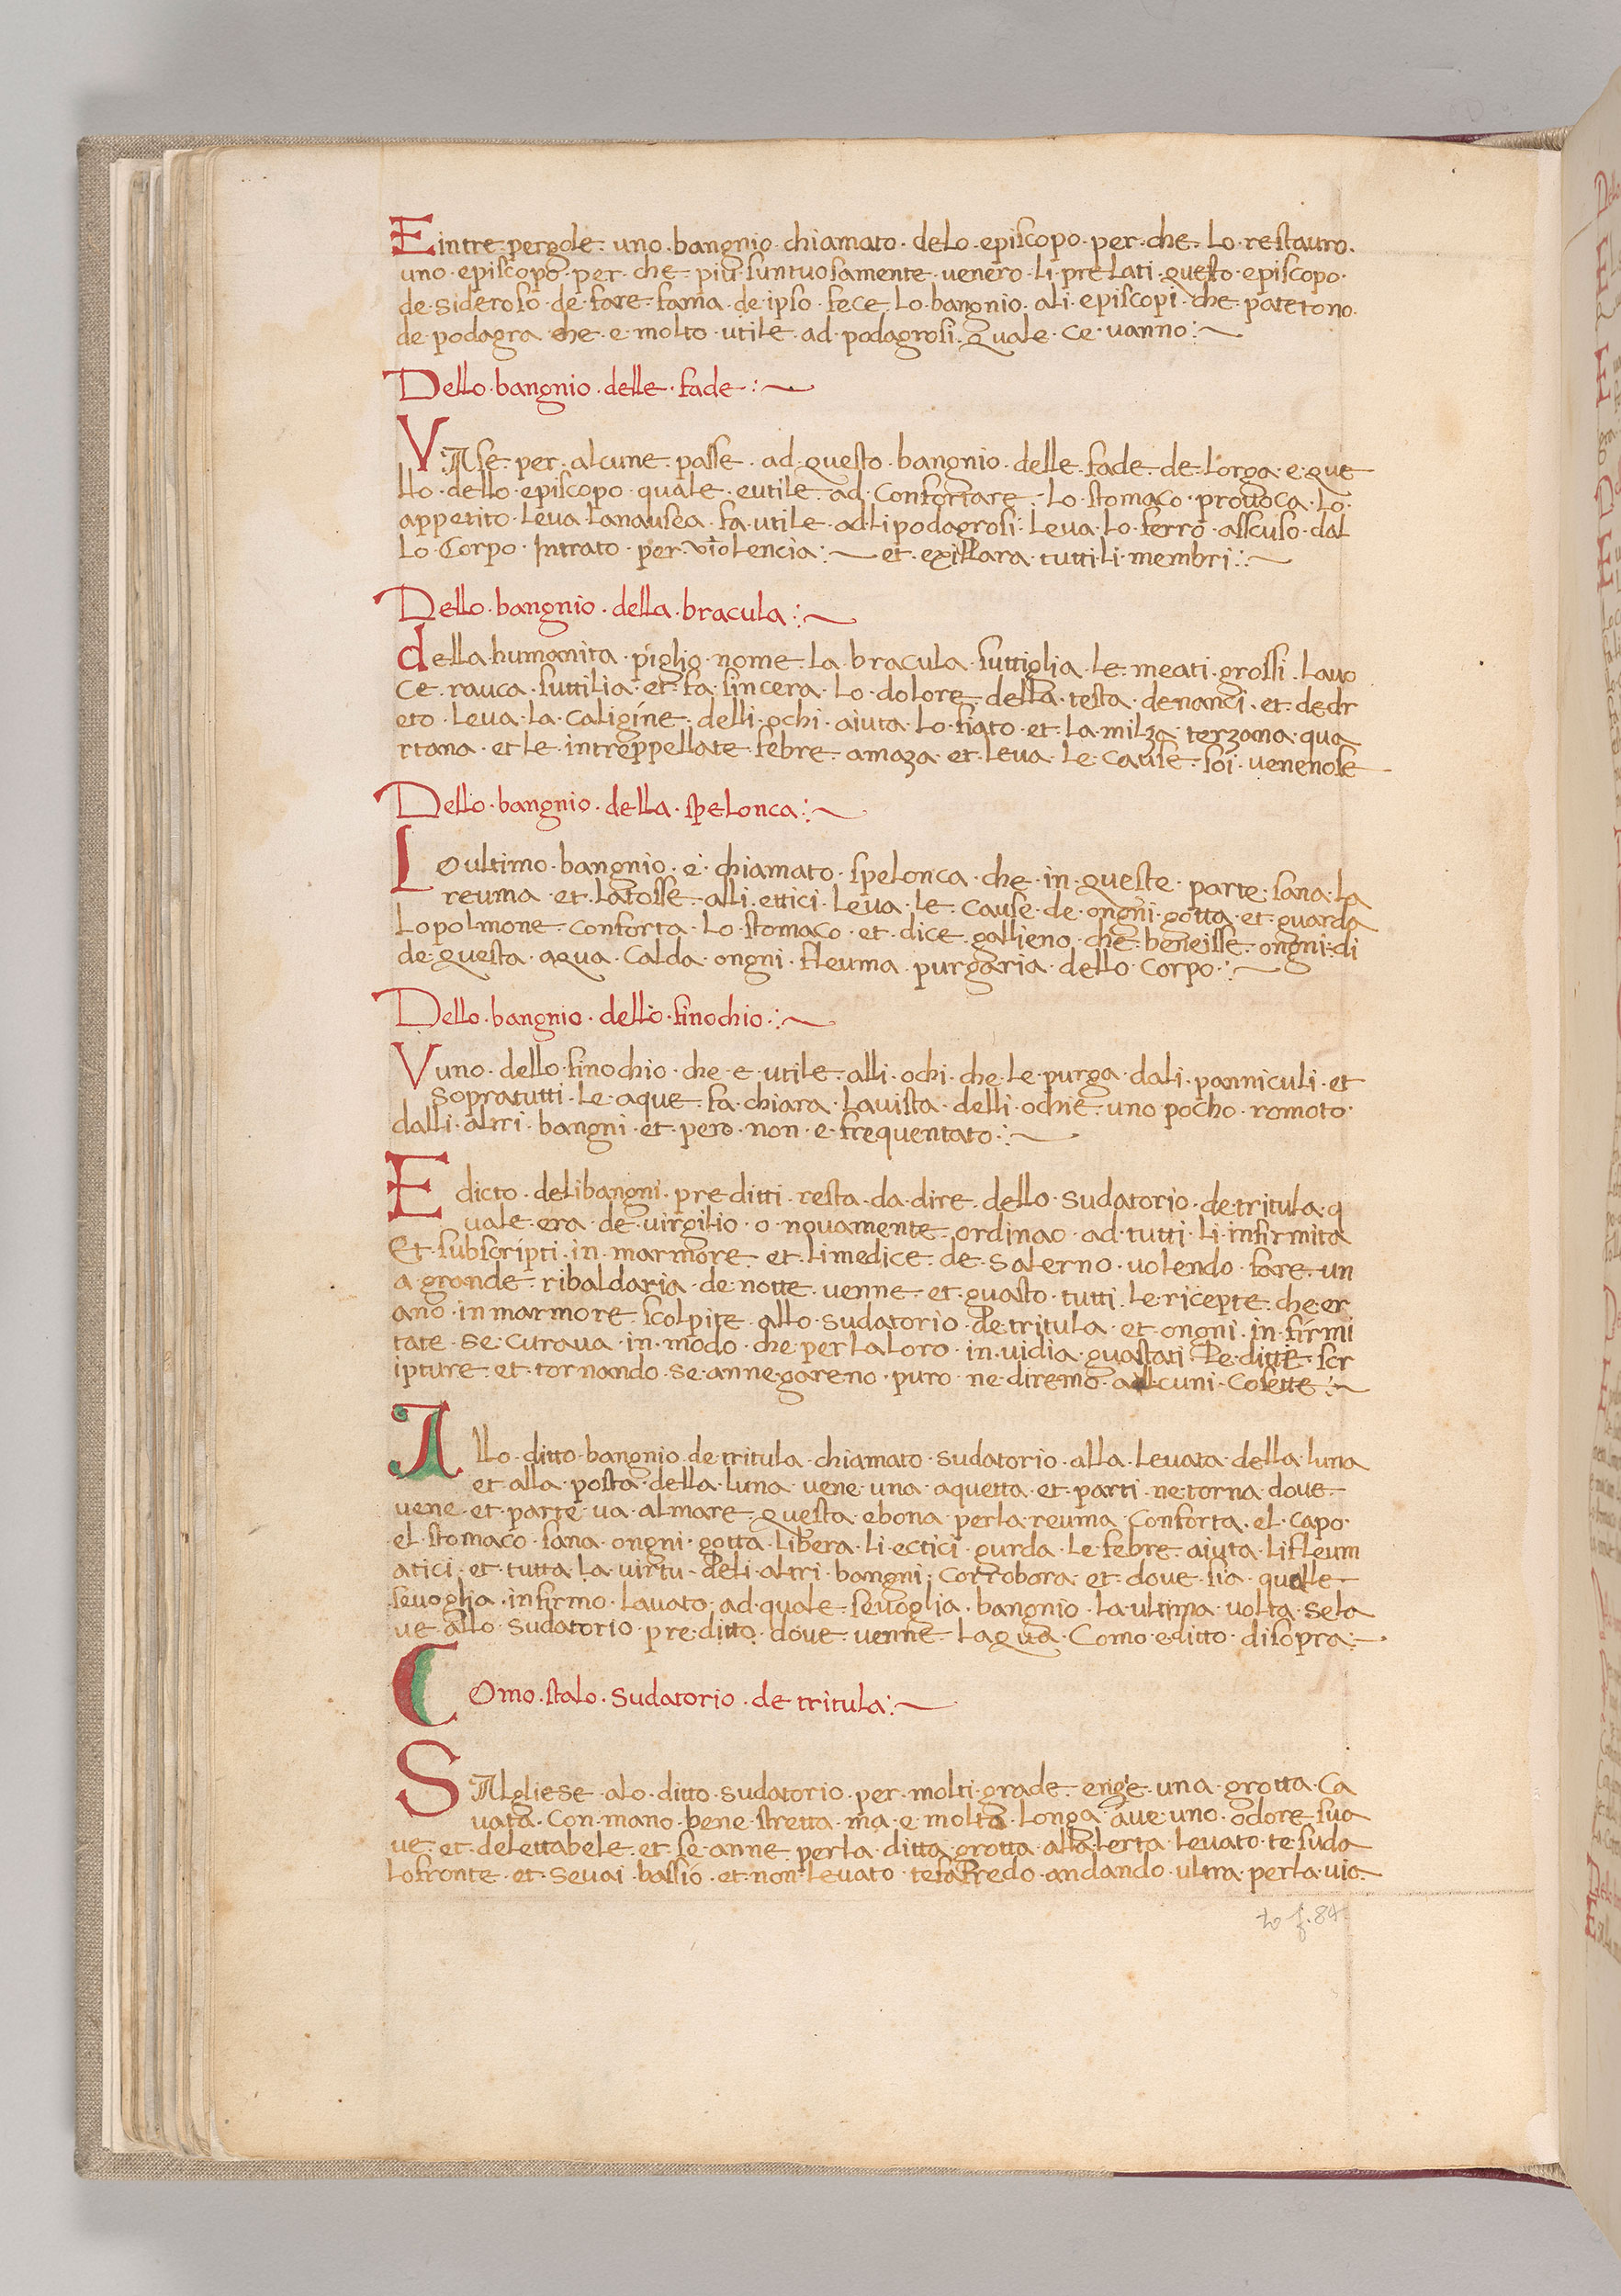 Eintre·pergole·uno·bangnio·chiamato·delo·episcopo·per·che·lo·restauro·
uno·episcopo·per·che·piu·suntuosamente·venero·li·prelati·questo·episcopo·
de·sideroso·de·fare·fama·de·ipso·fece·lo·bangnio·ali·episcopi·che·patetono·
de·podagra·che·e·molto·utile·ad·podagrosi·quale·ce·vanno:~
Dello·bangnio·delle·fade:~
VAse·per·alcune·passe·ad·questo·bangnio·delle·fade·de·lorga·e·que
llo·dello·episcopo·quale·eutile·ad·confortare·lo·stomaco·provoca·lo·
appetito·leva·lanausea·fa·utile·ad·li·podagrosi·leva·lo·ferro·asscuso·dal
lo·corpo·intrato·per·violencia:~et·exillara·tutti·li·membri:~
Dello·bangnio·della·bracula:~
della·humanita·piglio·nome·la·bracula·suttiglia·le·meati·grossi·lavo
ce·rauca·suttilia·et·fa·sincera·lo·dolore·della·testa·denanci·et·dedr
eto·leva·la·caligine·delli·ochi·aiuta·lo·fiato·et·la·milza·terzana·qua
rtana·et·le·intreppellate·febre·amaza·et·leva·le·cause·soi·venenose
Dello·bangnio·della·spelonca:~
Loultimo·bangnio·e·chiamato·spelonca·che·in·queste·parte·sana·la
reuma·et·latosse·alli·ettici·leva·le·cause·de·ongni·gotta·et·guarda
lopolmone·conforta·lo·stomaco·et·dice·gallieno·che·beneisse·ongni·di
de·questa·aqua·calda·ongni·fleuma·purgaria·dello·corpo:~
Dello·bangnio·dello·finochio:~
Vuno·dello·finochio·che·e·utile·alli·ochi·che·le·purga·dali·panniculi·et
sopratutti·le·aque·fa·chiara·lavista·delli·ochie·uno·pocho·romoto·
dalli·altri·bangni·et·pero·non·e·frequentato:~
Edicto·delibangni·preditti·resta·da·dire·dello·sudatorio·detritula·q
uale·era·de·virgilio·o·novamente·ordinao·ad·tutti·li·infirmita
Et·subscripti·in·marmore·et·limedice·de·salerno·volendo·fare·un
a·grande·ribaldaria·de·notte·venne·et·guasto·tutti·le·ricepte·che·er
ano·inmarmore·scolpite·allo·sudatorio·detritula·et·ongni·in·firmi
tate·se·curava·in·modo·che·perlaloro·in·vidia·guastati·le·ditte·scr
ipture·et·tornando·se·anne·gareno·puro·ne·diremo·alcuni·cosette:~
Allo·ditto·bangnio·detritula·chiamato·sudatorio·alla·levata·della·luna
et·alla·posta·della·luna·vene·una·aquetta·et·parti·ne·torna·dove·
vene·et·parte·va·almare·questa·ebona·perla·reuma·conforta·el·capo·
el·stomaco·sana·ongni·gotta·libera·li·ectici·gurda·le·febre·aiuta·li·fleum
atici·et·tutta·la·virtu·deli·altri·bangni·corrobora·et·dove·sia·qualle·
sevoglia·infirmo·lavato·ad·quale·sevoglia·bangnio·la·ultima·volta·sela
ve·allo·sudatorio·preditto·dove·venne·laqua·como·editto·disopra:~
Como·stalo·sudatorio·de·tritula:~
SAlgliese·alo·ditto·sudatorio·per·molti·grade·enge·una·grotta·ca
vata·con·mano·bene·stretta·ma·e·molta·longa·ave·uno·odore·sua
ve·et·delettabele·et·se·anne·perla·ditta·grotta·alla·terta·levato·te·suda
lofronte·et·sevai·bassio·et·non·levato·tefa·fredo·andando·ultra·perla·via·
to f. 84